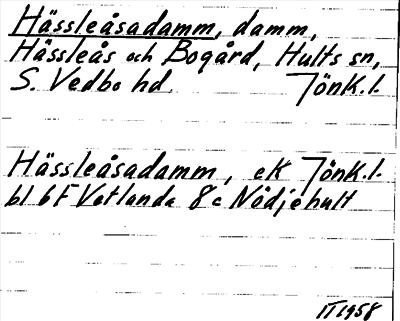 Hässleåsadamm, damm,
Hässleås och Bogård, Hults sn,
S. Vedbo hd. Jönk.l.
Hässleåsadamm, ek Jönk.l.
bl 6F Vetlanda 8c Nödjehult
IT 1958